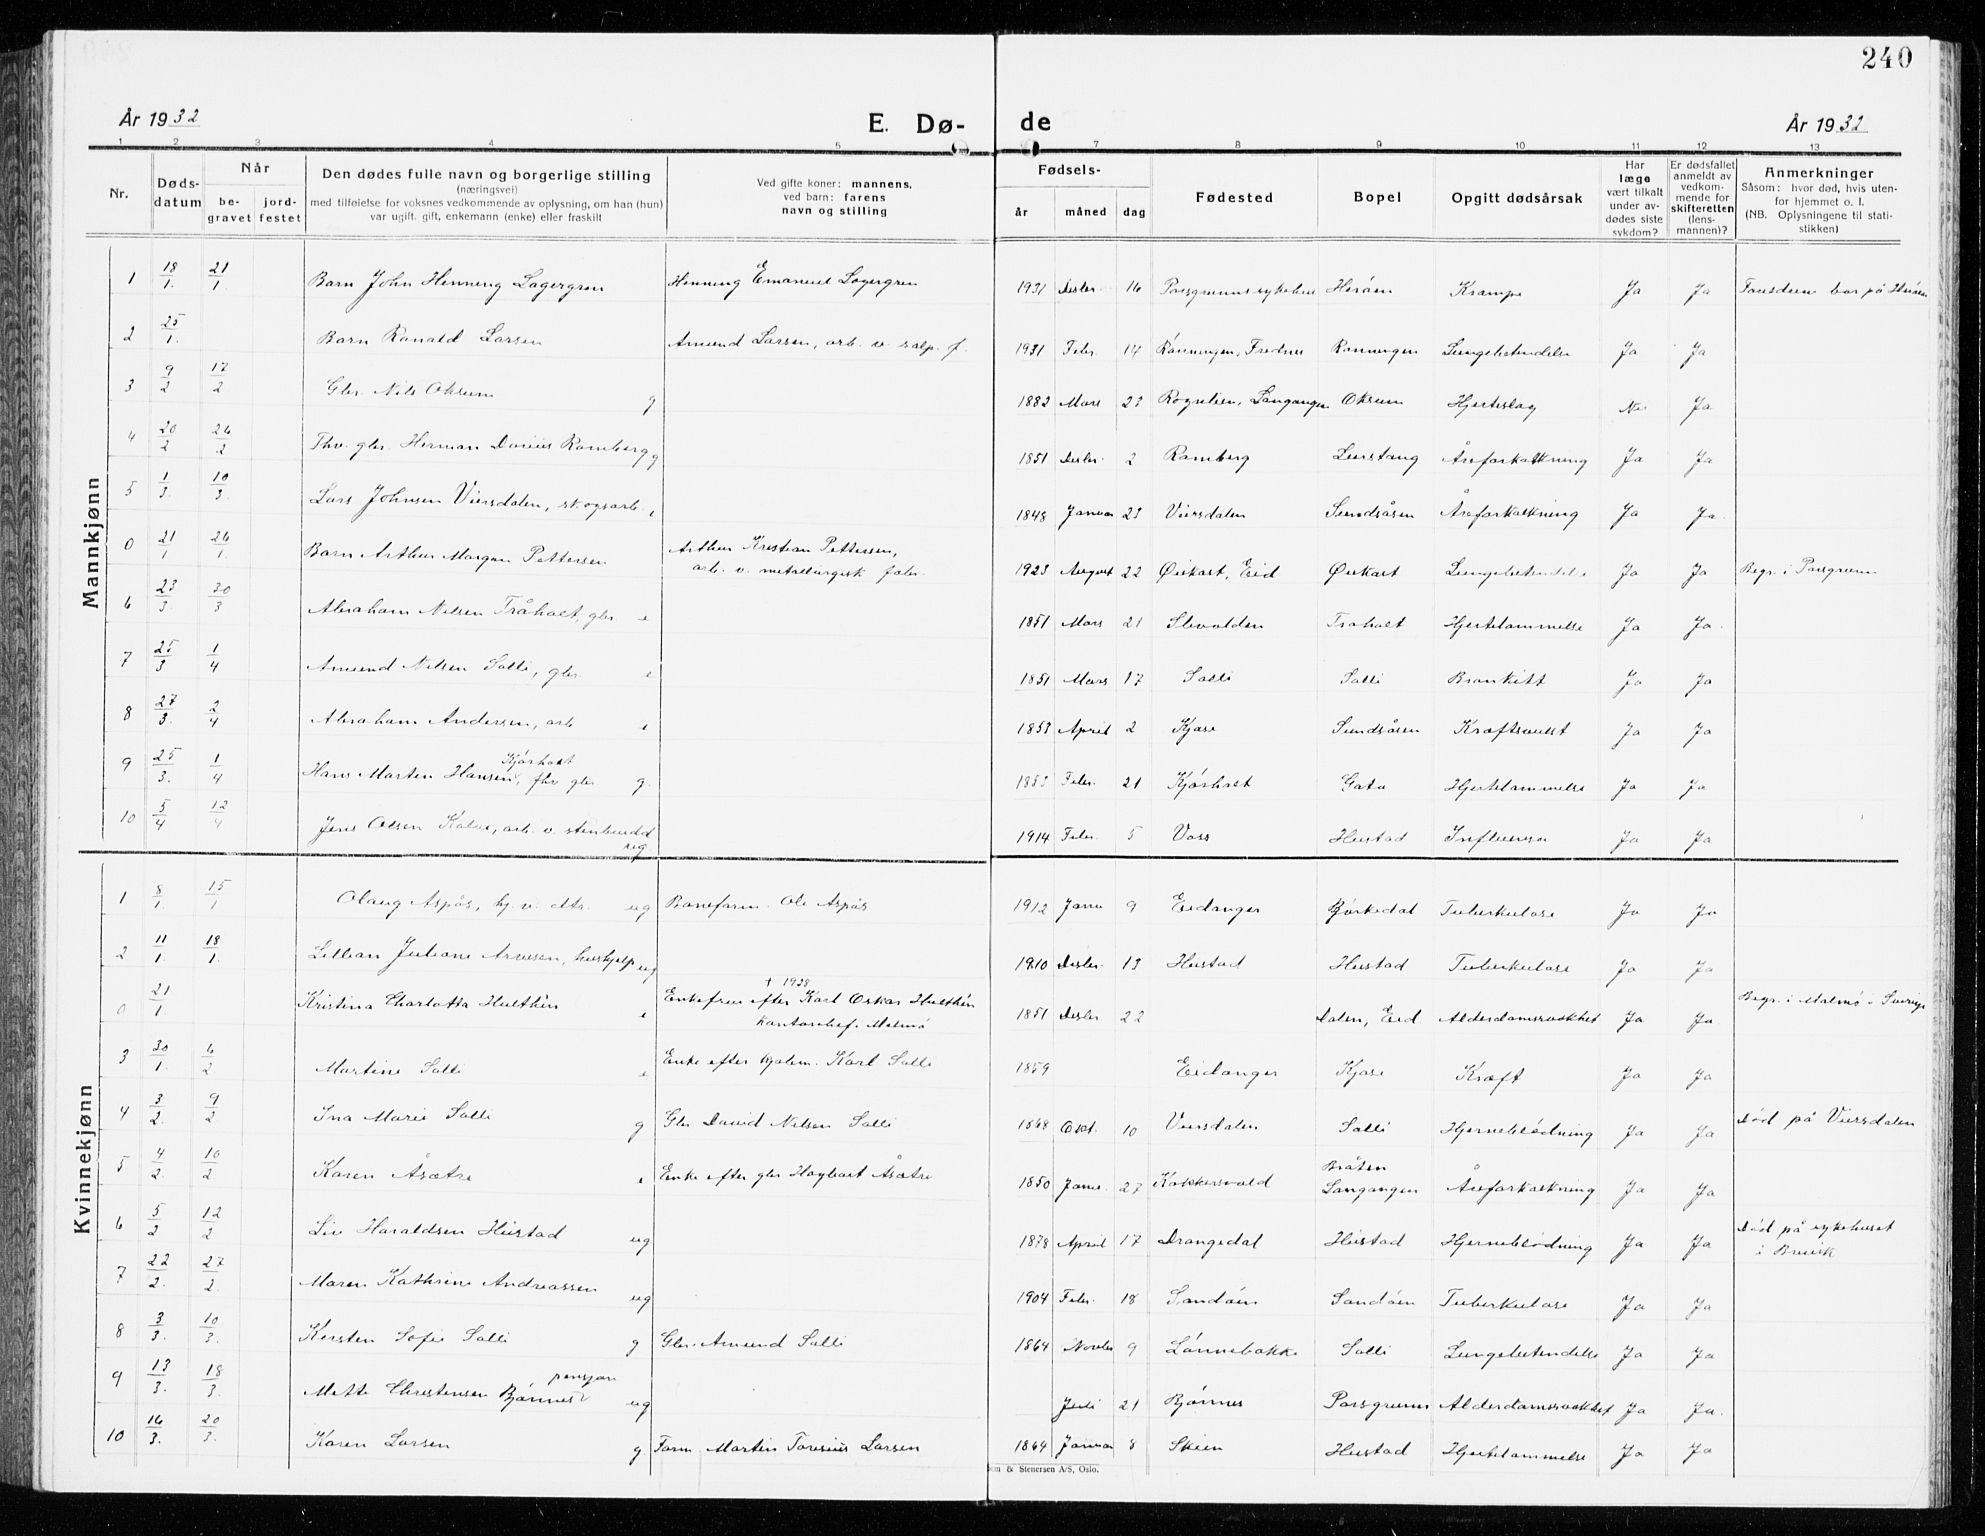 240
År 1932 E. Dø- de År 1932
1 2 3 4 5 7 8 9 10 11 12 13
Nr. Døds-datum Når begravet jordfestet Den dødes fulle navn og borgerlige stilling (næringsvei) med tilføielse for voksnes vedkommende av oplysning, om han (hun) var ugift, gift, enkemann (enke) eller fraskilt Ved gifte koner: mannens, ved barn: farens navn og stilling Fødsels- år måned dag Fødested Bopel Opgitt dødsårsak Har læge vært tilkalt under avdødes siste sykdom? Er dødsfallet anmeldt av vedkommende for skifteretten (lensmannen)? Anmerkninger Såsom: hvor død, hvis utenfor hjemmet o. l. (NB. Oplysningene til statistikken)
Mannkjønn
1 18/1. 21/1. Barn John Henning Lagergren Henning Emanuel Lagergren 1931 Desbr. 16 Porsgrunns sykehus Herøen Krampe Ja Ja Foreldrene bor på Herøen
2 25/1. Barn Ronald Larsen Amund Larsen, arb. v. salp. f. 1931 Febr. 14 Rønningen, Frednes Rønningen Lungebetendelse Ja Ja
3 9/2 17/2 Gbr. Nils Oksum g 1882 Mars 23 Rognlien, Langangen Oksum Hjerteslag Nei Ja
4 20/2 26/2 Fhv. gbr. Herman Dorius Ramberg g 1851 Desbr. 2 Ramberg Leirstang Åreforkalkning Ja Ja
5 1/3. 10/3. Lars Johnsen Viersdalen, skogsarb. e 1848 Januar 23 Viersdalen Sundsåsen Åreforkalkning Ja Ja.
0 21/1 26/1. Barn Arthur Morgan Pettersen Arthur Kristian Pettersen, arb. v. metallurgisk fabr. 1923 August 22 Ørekast, Eid Ørekast Lungebetendelse Ja Ja Begr. i Porsgrunn
6 23/3. 30/3 Abraham Nilsen Tråholt, gbr. e 1851 Mars 21 Stevolden Tråholt Hjertelammelse Ja Ja.
7 25/3 1/4 Amund Nilsen Salli, gbr. e 1851 Mars 17 Salli Salli Bronkitt Ja Ja
8 27/3. 2/4 Abraham Andersen, arb e 1853 April 2 Kjøse Sundsåsen Kræftsvulst Ja Ja
9 25/3. 1/4 Hans Martin Hansen Kjørholt, fhv gbr g. 1853 Febr. 21 Kjørholt Gata Hjertelammelse Ja Ja
10 5/4 12/4 Jens Olsen Kalve, arb. v. stenbrudd ug 1914 Febr. 5 Voss Heistad Influensa Ja Ja
Kvinnekjønn
1 8/1. 15/1 Olaug Aspås, hj. v. dtr. ug Baneform. Ole Aspås 1912 Janu 9 Eidanger Bjørkedal Tuberkulose Ja Ja
2 11/1. 18/1. Lillian Juliane Arnesen, hushjelp ug 1910 Desbr. 13 Heistad Heistad Tuberkulose Ja Ja
0 21/1. Kristina Charlotta Hulthén e Enkefrue efter Karl Oskar Hulthén † 1928 kontorchef. Malmø 1851 Desbr 22 Dalen, Eid Alderdomssvakhet Ja Ja Begr. i Malmø - Sverige
3 30/1. 6/2 Martine Salli e Enke efter Karl Salli 1859 Eidanger Kjøse Kræft Ja Ja
4 3/2. 9/2 Ina Marie Salli g Gbr David Nilsen Salli 1868 Okt. 10 Viersdalen Salli Hjerneblødning Ja Ja Død på Viersdalen
5 4/2 10/2 Karen Åsætre e Enke efter gbr Hagbart Åsætre 1850 Janu. 27 Kokkersvold Bråten Langangen Åreforkalkning Ja Ja
6 5/2 12/2 Liv Haraldsen Heistad ug 1878 April 17 Drangedal Heistad Hjerneblødning Ja Ja Død på sykehuset i Brevik
7 22/2. 27/2. Maren Kathrine Andreassen ug 1904 Febr. 18 Sandøen Sandøen Tuberkulose Ja Ja
8 3/3. 10/3. Kirsten Sofie Salli g Gbr. Amund Salli 1864 Novbr 9 Lønnebakke Salli Lungebetendelse Ja Ja
9 13/3. 18/3. Mette Christensen Bjønnes pensjon ug Juli 21 Bjønnes Porsgrunn Alderdomssvakhet Ja Ja.
10 16/3. 20/3. Karen Larsen g. Form. Martin Toresius Larsen 1864 Januar 8 Skien Heistad Hjertelammelse Ja Ja
& Stenersen A/S, Oslo.